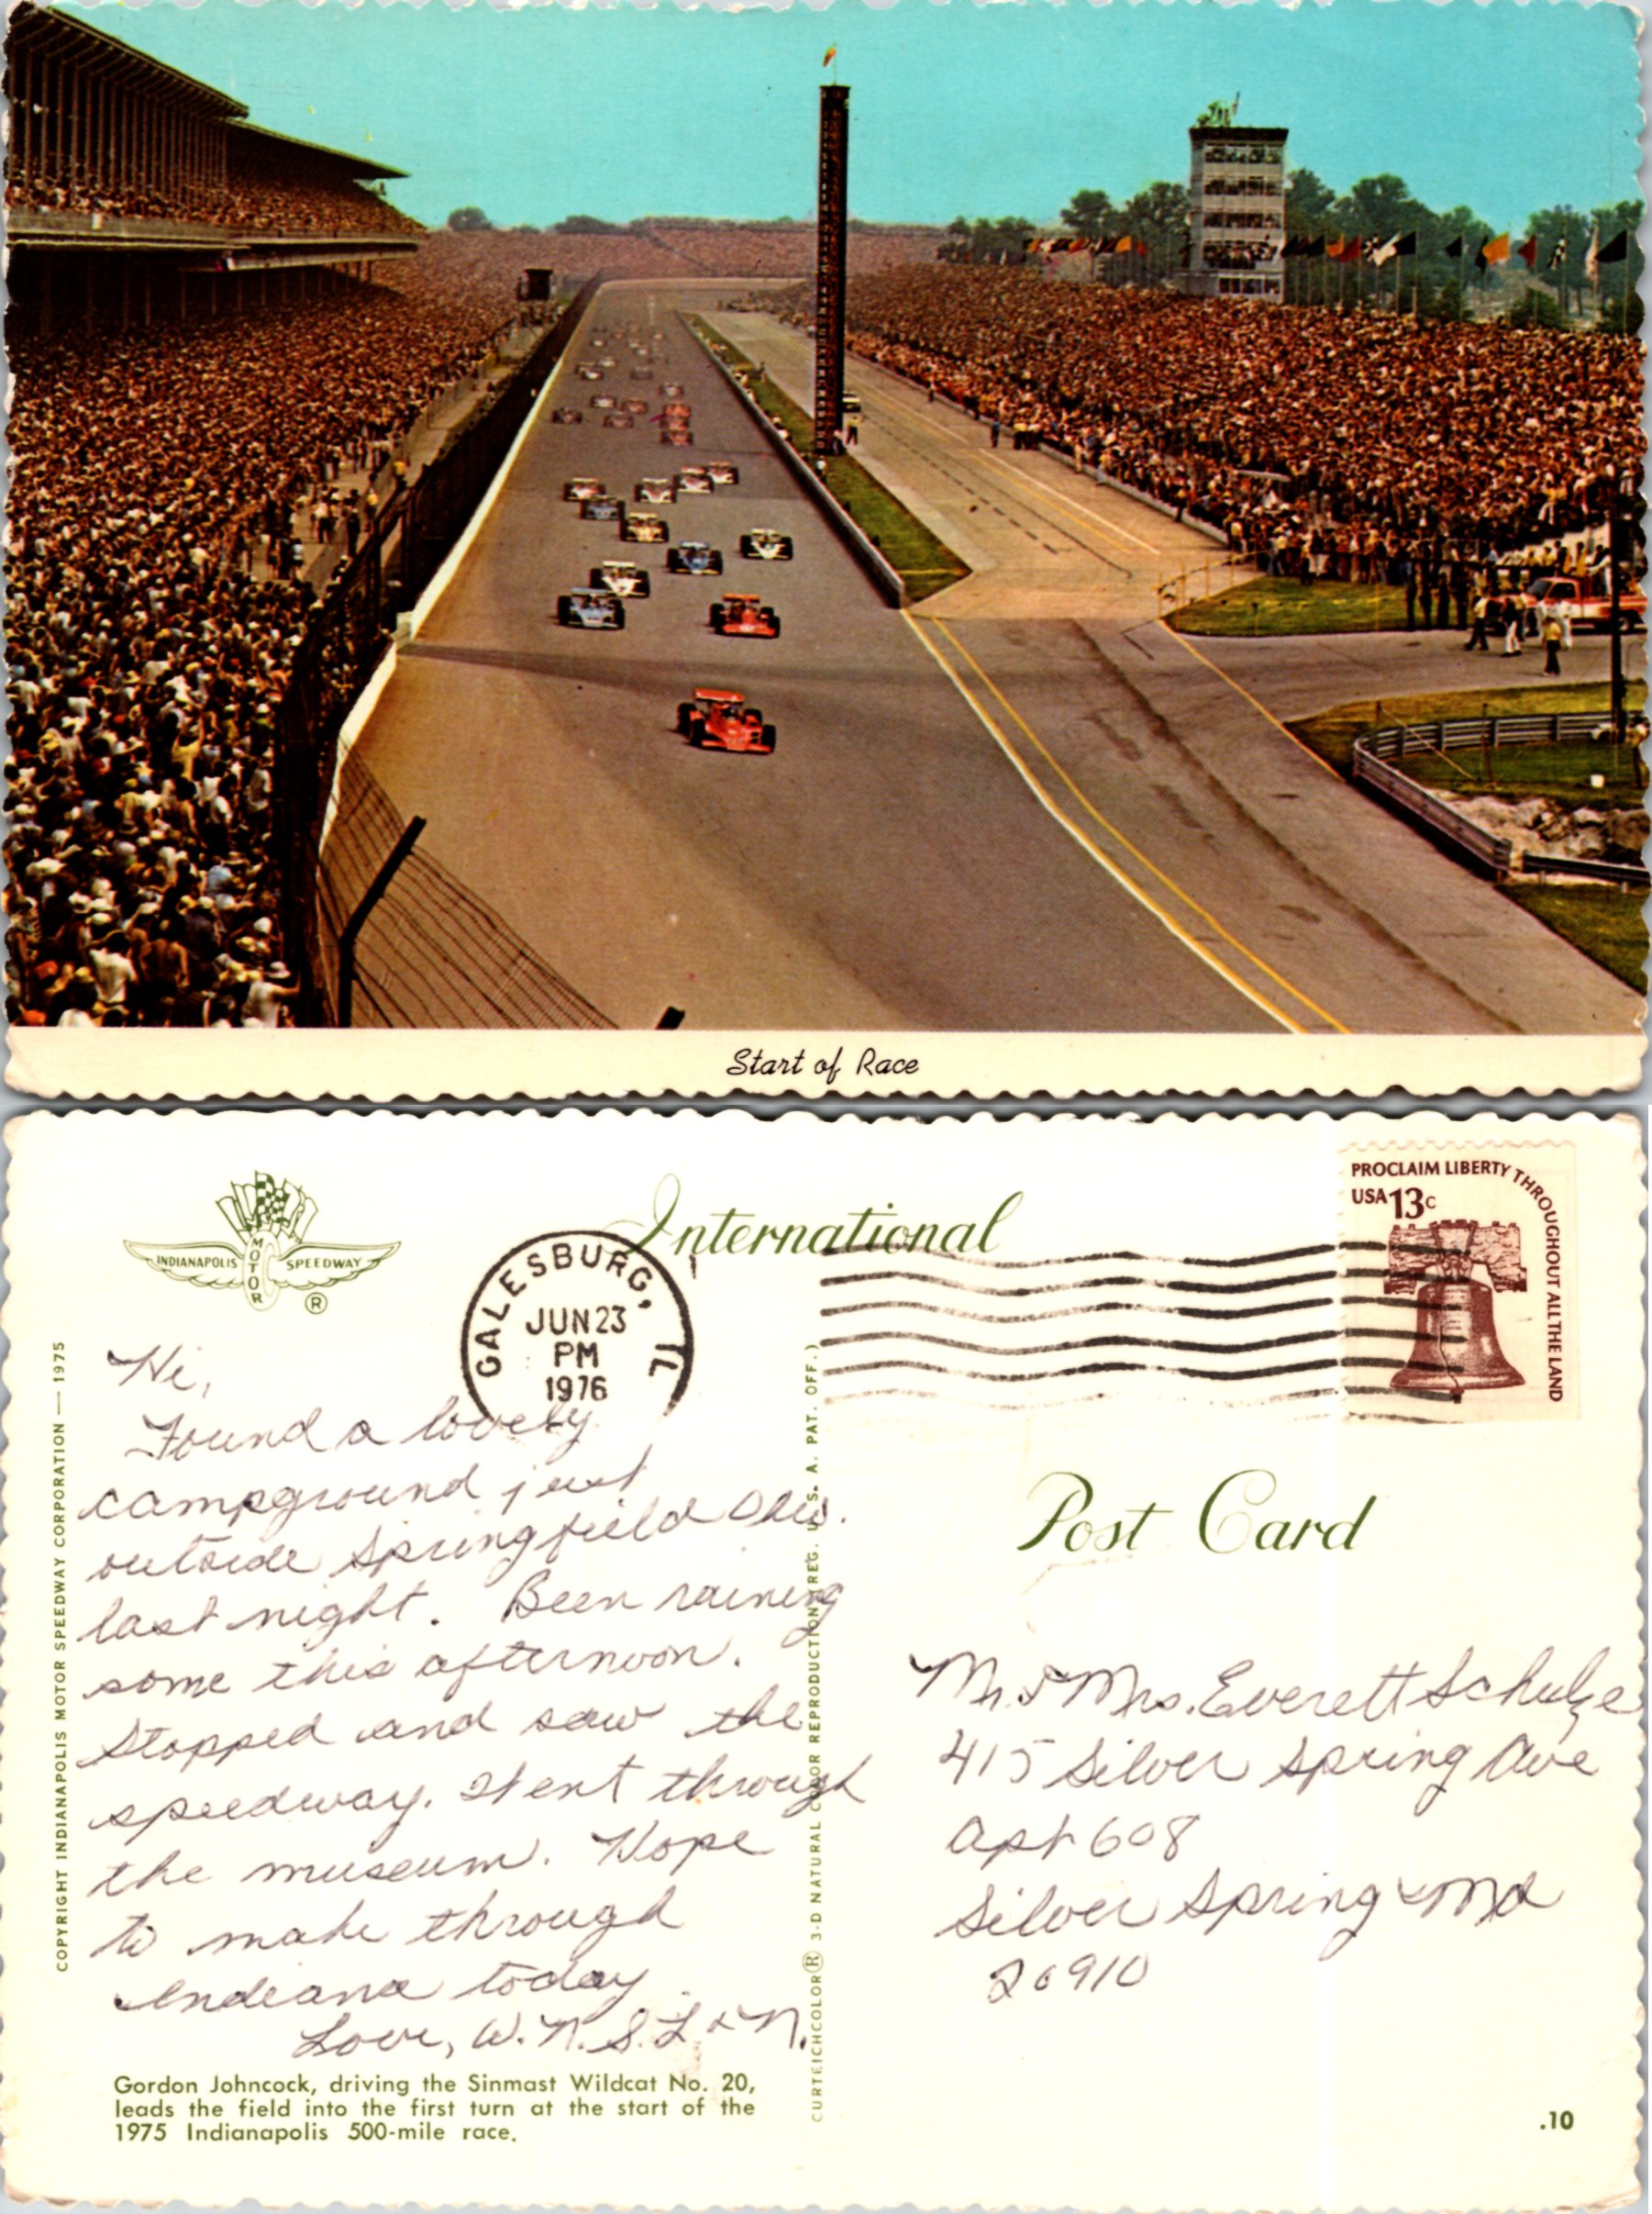 Start of Race
INDIANAPOLIS MOTOR SPEEDWAY ®
International
GALESBURG, IL
JUN 23
PM
1976
PROCLAIM LIBERTY THROUGHOUT ALL THE LAND
USA 13c
COPYRIGHT INDIANAPOLIS MOTOR SPEEDWAY CORPORATION — 1975
Hi,
Found a lovely
campground just
outside Springfield Ohio.
last night. Been raining
some this afternoon.
Stopped and saw the
speedway. Went through
the museum. Hope
to make through
Indiana today.
Love, W. N. S. L + N.
Gordon Johncock, driving the Sinmast Wildcat No. 20,
leads the field into the first turn at the start of the
1975 Indianapolis 500-mile race.
CURTEICHCOLOR® 3-D NATURAL COLOR REPRODUCTION (REG. U. S. A. PAT. OFF.)
Post Card
Mr. & Mrs. Everett Schulze
415 Silver Spring Ave
Apt 608
Silver Spring Md
20910
.10